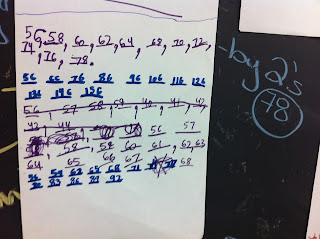 56, 58, 60, 62, 64, 68, 70, 72,
74, 76, 78.
56 66 76 86 96 106 116 126
136 146 156
56, 57 58, 59, 40, 41, 42,
43 44 56 57
58, 59 60 61, 62, 63
64 65 66 67 68
56 59 62 65 68 71
80 83 86 89 92
-by 2's
78